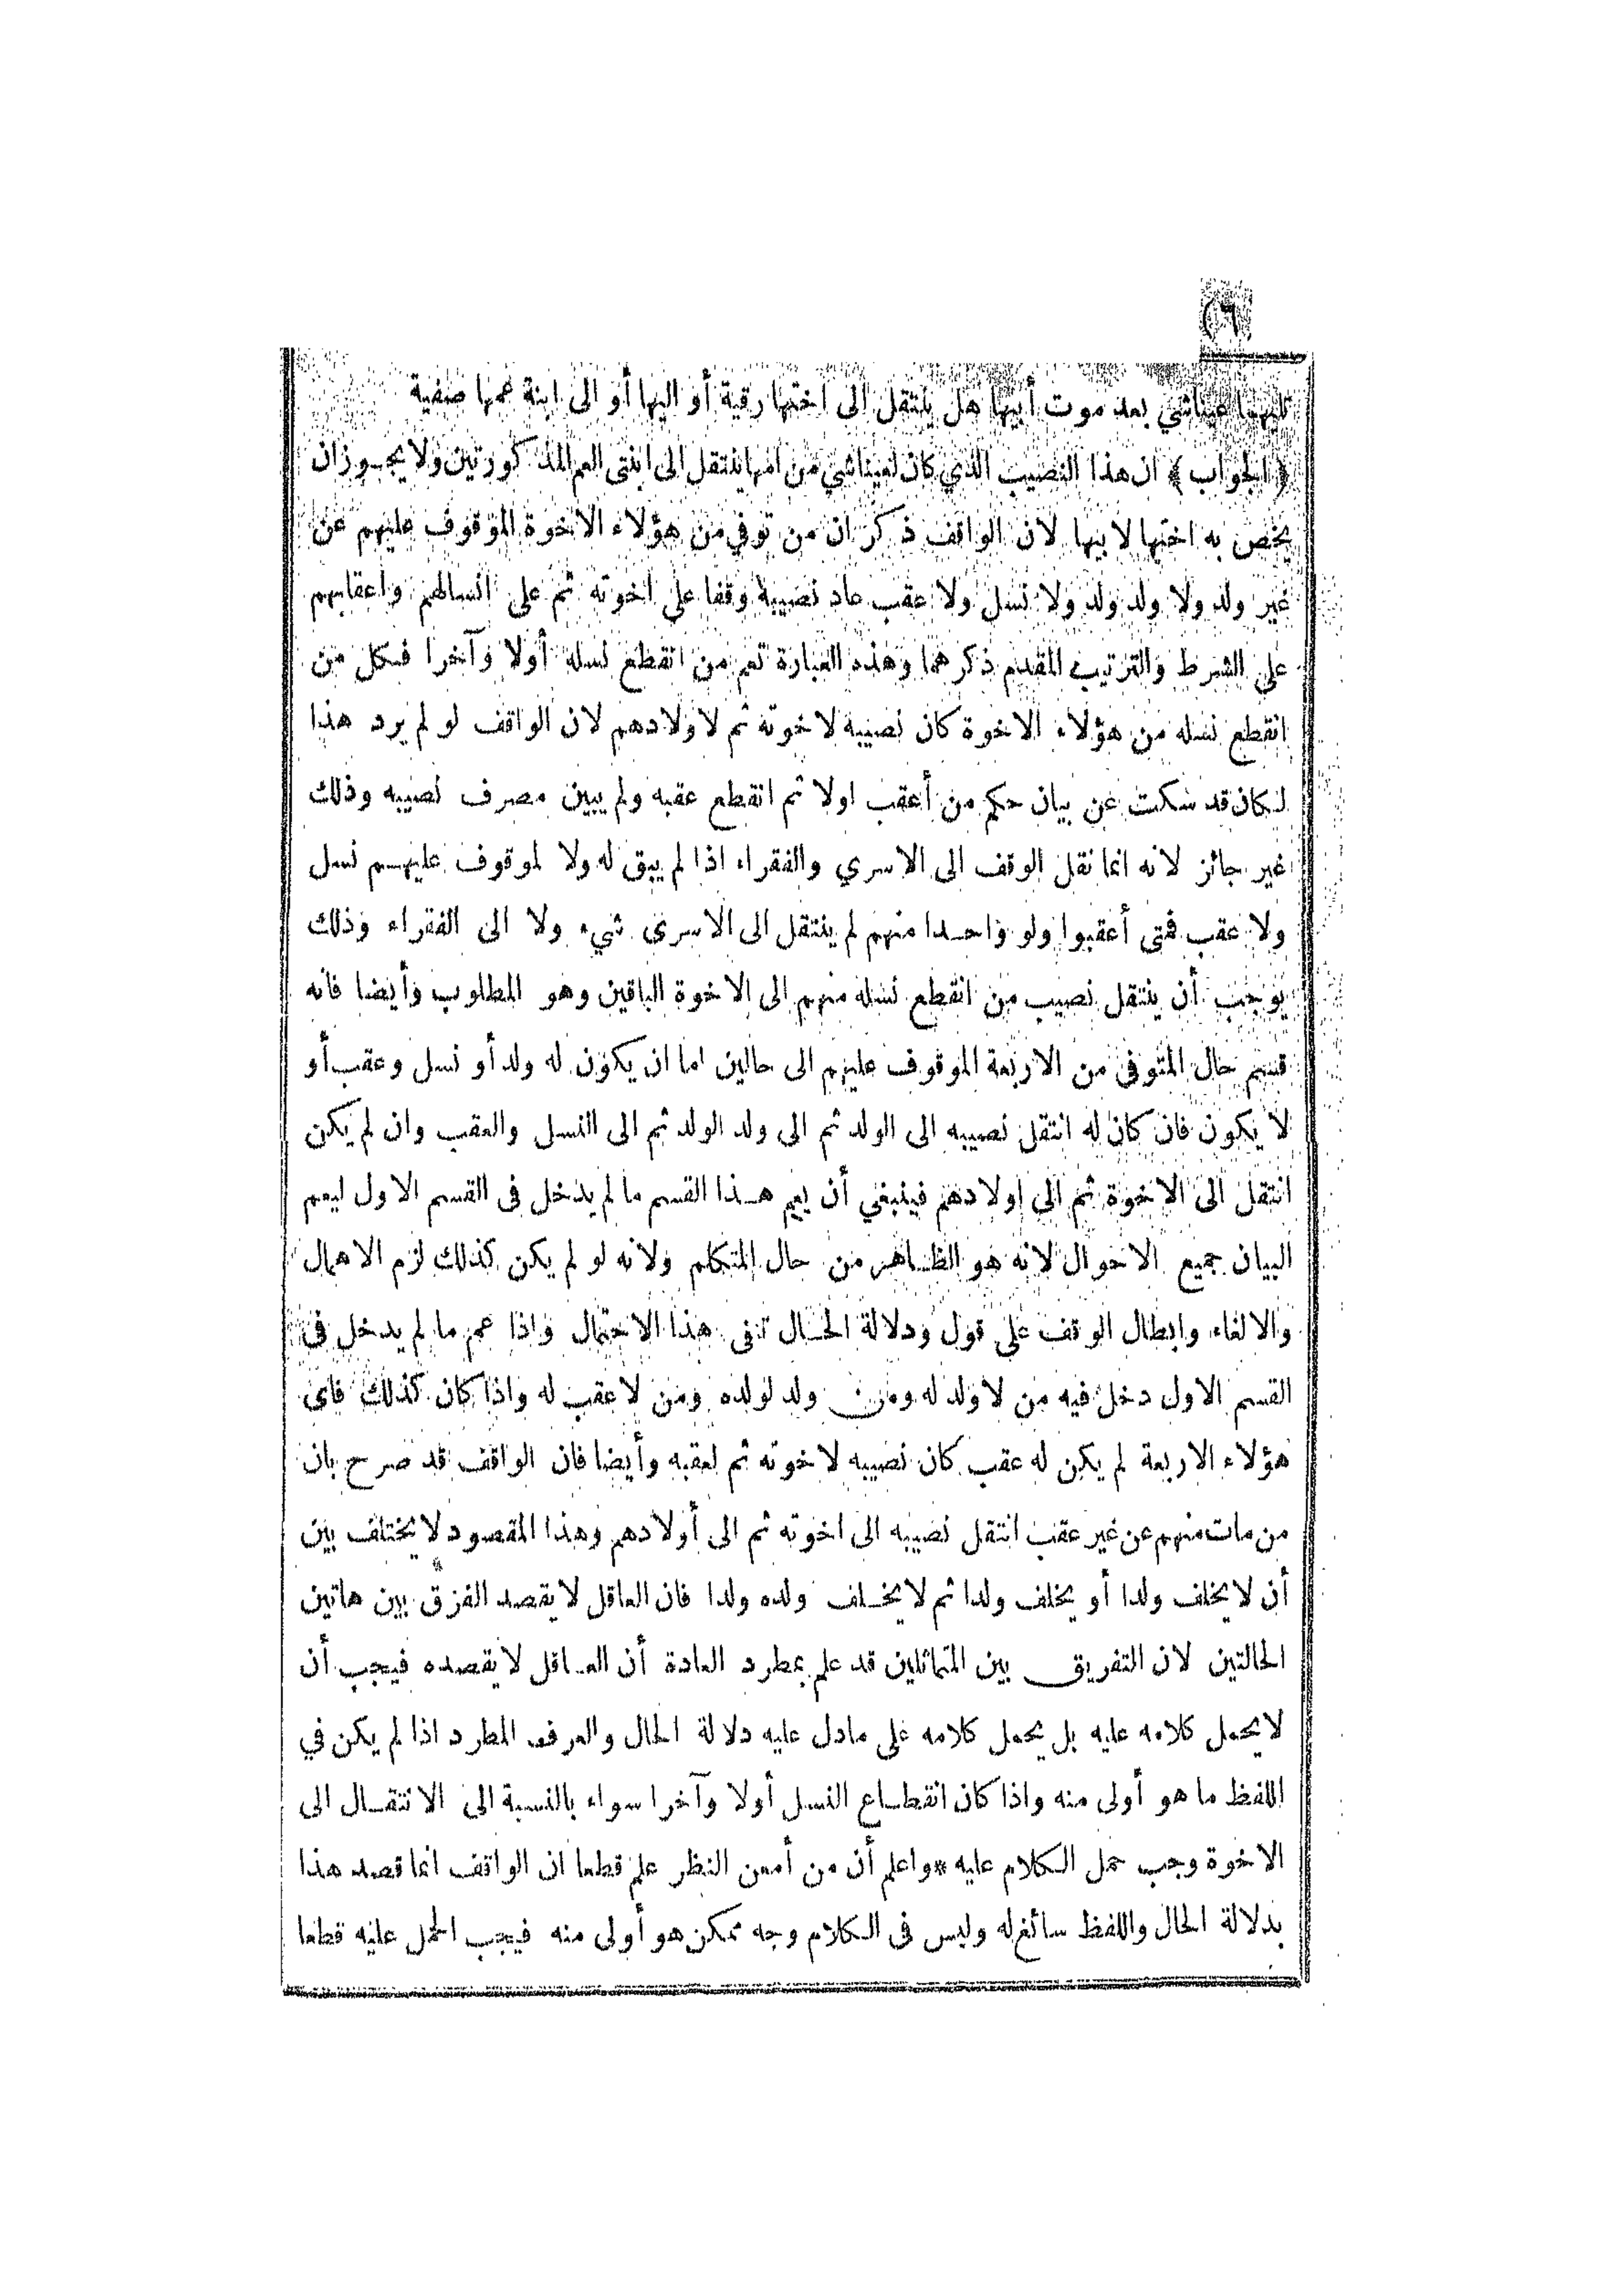 (٦)
عيناشي بعد موت أبيها هل ينتقل الى اختها رقية أو اليها أو الى ابنة عمها صفية
﴿الجواب﴾ ان هذا النصيب الذي كان لعيناشي من امها ينتقل الى ابنتى العم المذكورتين ولا يجوز ان
يخص به اختها لابيها لان الواقف ذكر ان من توفي من هؤلاء الاخوة الموقوف عليهم عن
غير ولد ولا ولد ولد ولا نسل ولا عقب عاد نصيبه وقفا على اخوته ثم على انسالهم واعقابهم
على الشرط والترتيب المقدم ذكرهما وهذه العبارة تعم من انقطع نسله أولا وآخرا فكل من
انقطع نسله من هؤلاء الاخوة كان نصيبه لاخوته ثم لاولادهم لان الواقف لو لم يرد هذا
لكان قد سكت عن بيان حكم من أعقب اولا ثم انقطع عقبه ولم يبين مصرف نصيبه وذلك
غير جائز لانه انما نقل الوقف الى الاسري والفقراء اذا لم يبق له ولا لموقوف عليهم نسل
ولا عقب فمتى أعقبوا ولو واحدا منهم لم ينتقل الى الاسرى شيء ولا الى الفقراء وذلك
يوجب أن ينتقل نصيب من انقطع نسله منهم الى الاخوة الباقين وهو المطلوب وأيضا فانه
قسم حال المتوفى من الاربعة الموقوف عليهم الى حالين اما ان يكون له ولد أو نسل وعقب أو
لا يكون فان كان له انتقل نصيبه الى الولد ثم الى ولد الولد ثم الى النسل والعقب وان لم يكن
انتقل الى الاخوة ثم الى اولادهم فينبغي أن يعم هذا القسم ما لم يدخل فى القسم الاول ليعم
البيان جميع الاحوال لانه هو الظاهر من حال المتكلم ولانه لو لم يكن كذلك لزم الاهمال
والالغاء وابطال الوقف على قول ودلالة الحال تنفى هذا الاحتمال واذا عم ما لم يدخل فى
القسم الاول دخل فيه من لا ولد له ومن ولد لولده ومن لا عقب له واذا كان كذلك فاى
هؤلاء الاربعة لم يكن له عقب كان نصيبه لاخوته ثم لعقبه وأيضا فان الواقف قد صرح بان
من مات منهم عن غير عقب انتقل نصيبه الى اخوته ثم الى أولادهم وهذا المقصود لا يختلف بين
أن لا يخلف ولدا أو يخلف ولدا ثم لا يخلف ولده ولدا فان العاقل لا يقصد الفرق بين هاتين
الحالتين لان التفريق بين المتماثلين قد علم بمطرد العادة أن العاقل لا يقصده فيجب أن
لا يحمل كلامه عليه بل يحمل كلامه على مادل عليه دلالة الحال والعرف المطرد اذا لم يكن في
اللفظ ما هو أولى منه واذا كان انقطاع النسل أولا وآخرا سواء بالنسبة الى الانتقال الى
الاخوة وجب حمل الكلام عليه * واعلم أن من أمعن النظر علم قطعا ان الواقف انما قصد هذا
بدلالة الحال واللفظ سائغ له وليس فى الكلام وجه ممكن هو أولى منه فيجب الحمل عليه قطعا